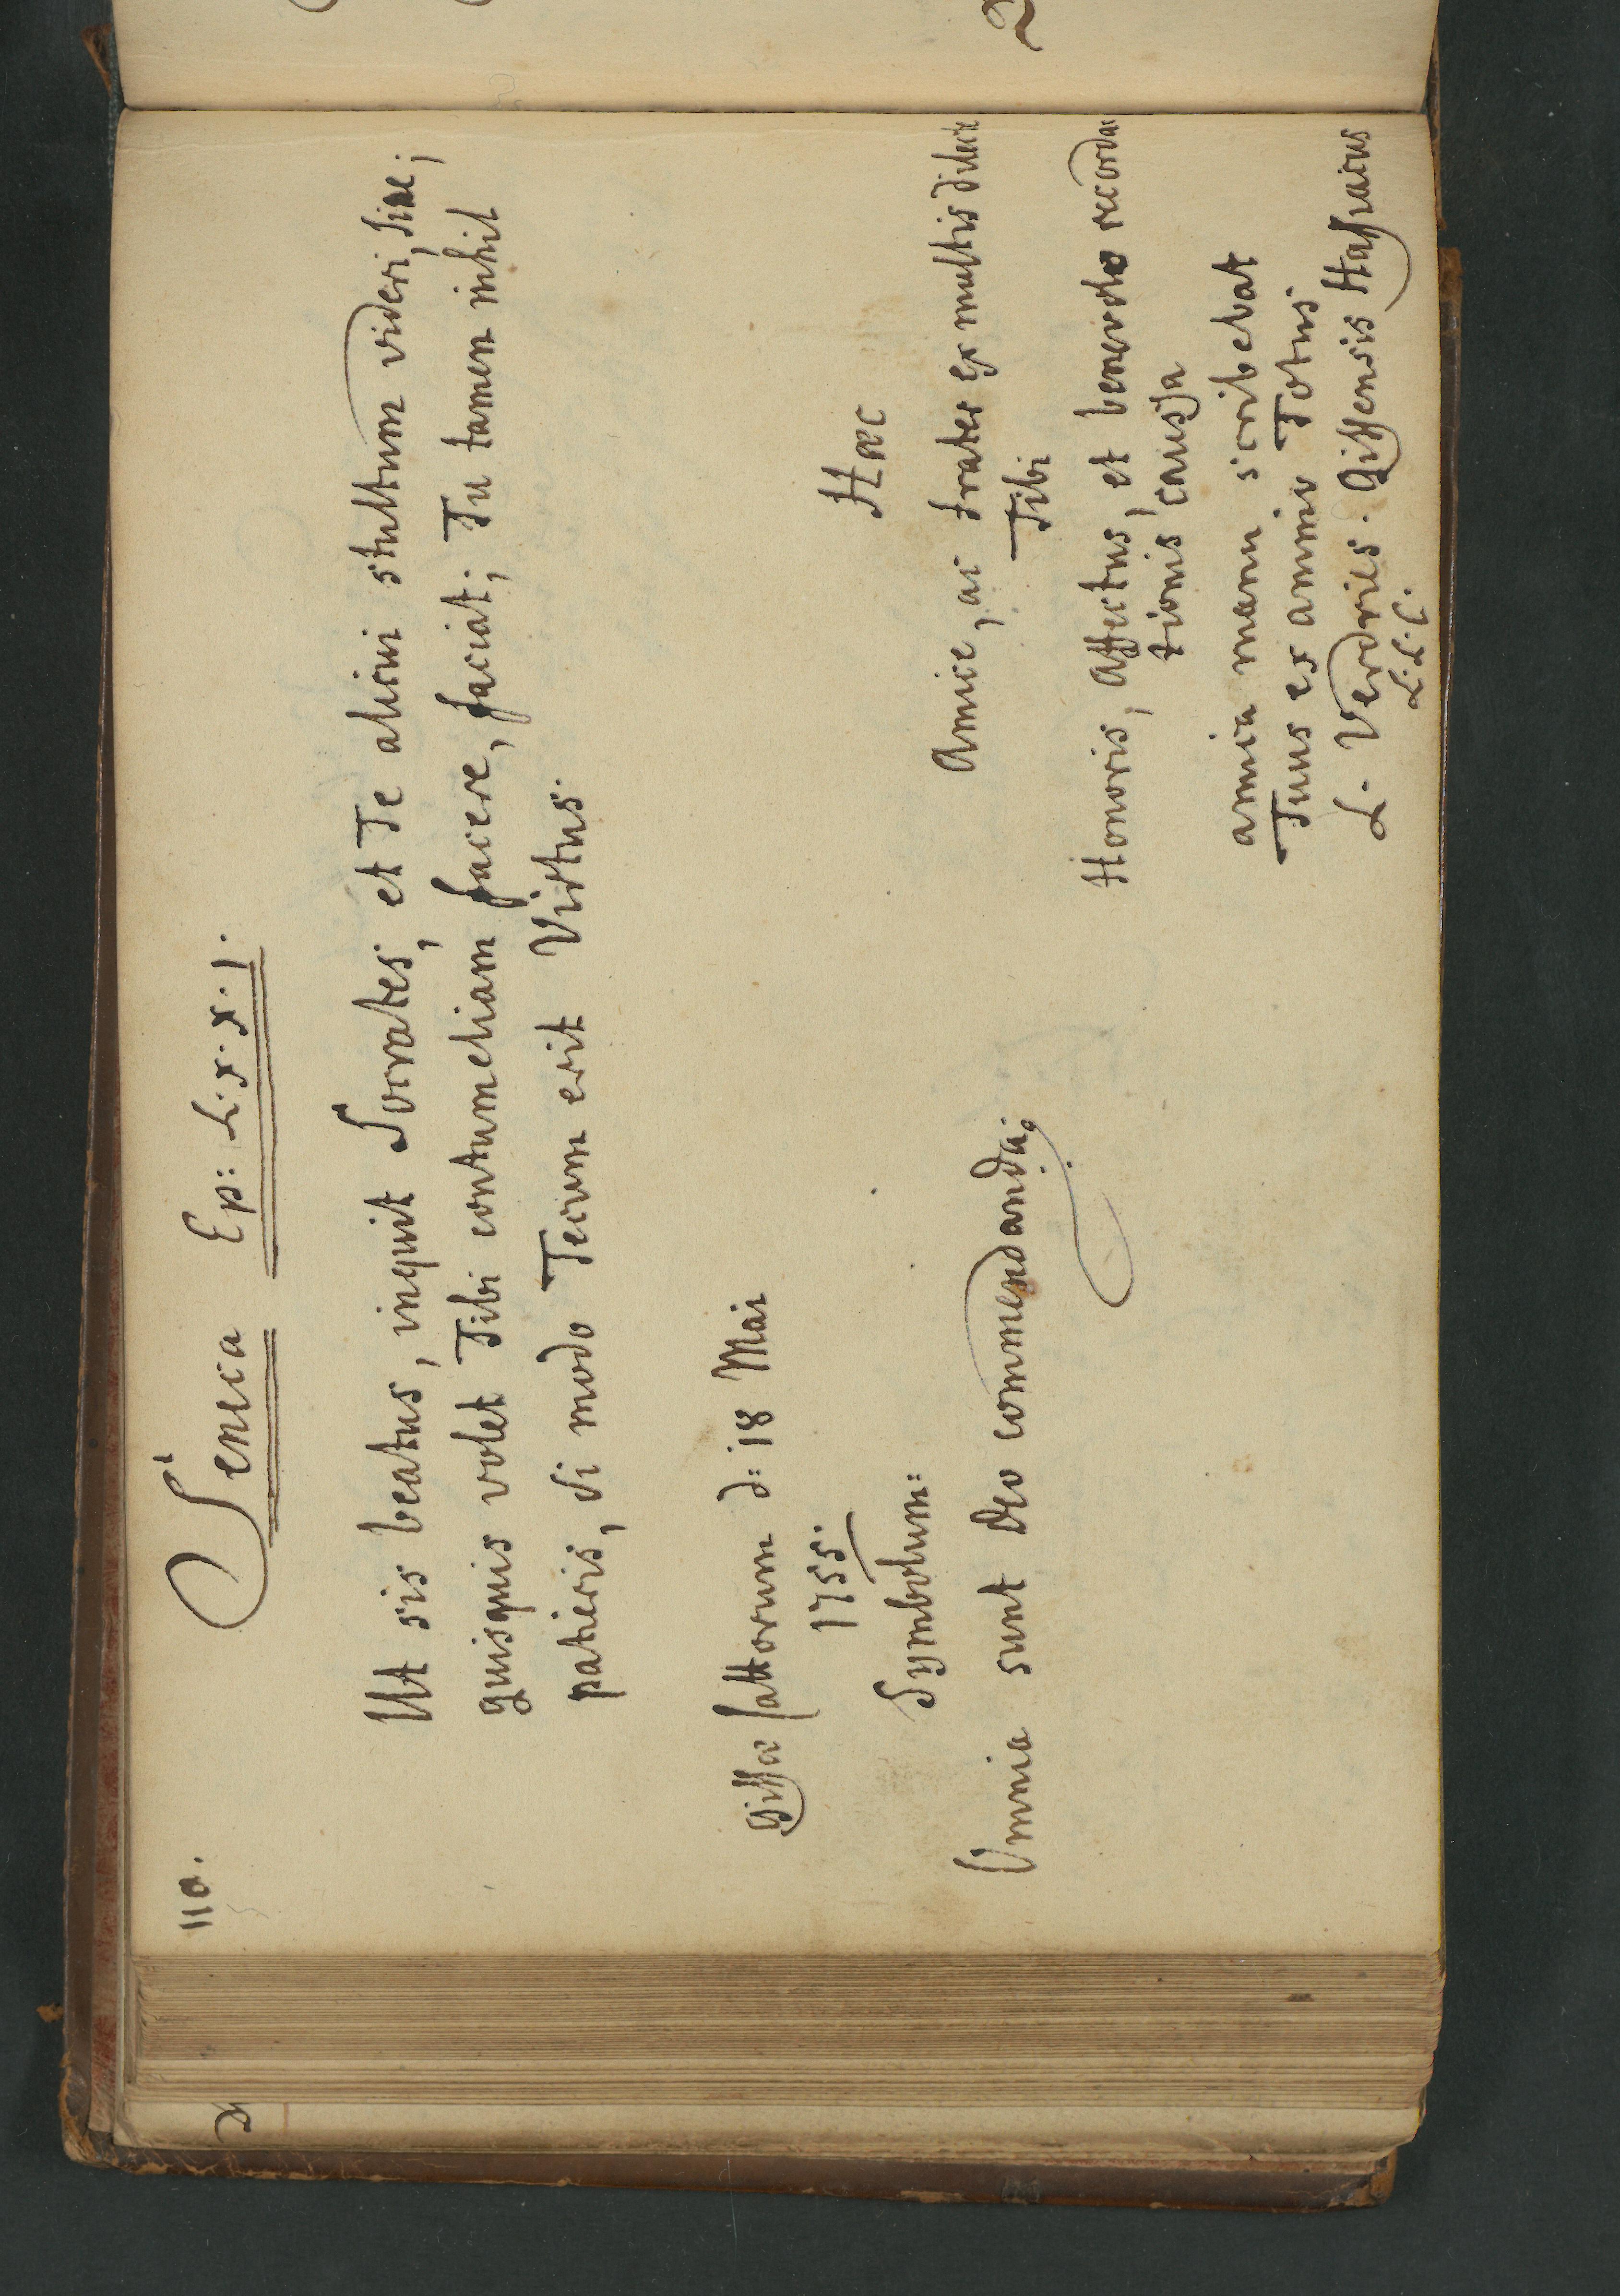 110.
Seneca Ep: L.x.x.I.
Ut sis beatus, inquit Socrates, et Te alicui stultum videri, sine;
quisquis volet Tibi contumeliam facere, faciat; Tu tamen nihil
patieris, si modo Tecum erit Virtus.
Gissæ Cattorum d: 18 Mai
1755.
Symbolum:
Omnia sunt Deo commendanda;
Hæc
Amice, ac frater ex multis dilecte
Tibi
Honoris, affectus, et benevolæ recorda-
tionis caussa
amica manu scribebat
Tuus ex animo Totus
L. Verdries. Gissensis Hassiacus
L.L.C.